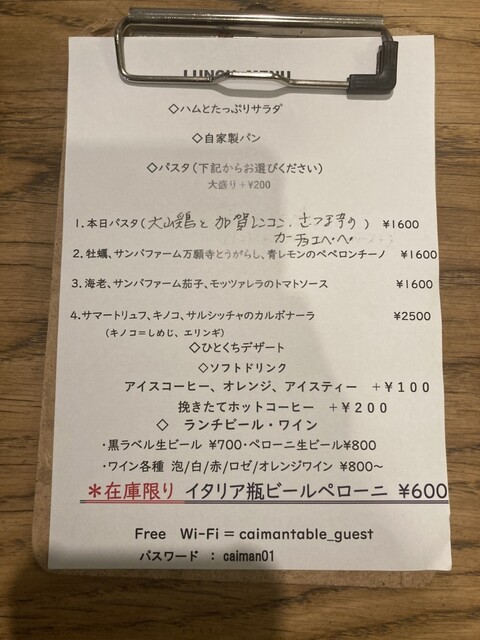 LUNCH MENU
◇ハムとたっぷりサラダ
◇自家製パン
◇パスタ（下記からお選びください）
大盛り＋¥200
1.本日パスタ（大山鶏と加賀レンコン、さつま芋の カーチョエペペ） ¥1600
2.牡蠣、サンパファーム万願寺とうがらし、青レモンのペペロンチーノ ¥1600
3.海老、サンパファーム茄子、モッツァレラのトマトソース ¥1600
4.サマートリュフ、キノコ、サルシッチャのカルボナーラ ¥2500
（キノコ＝しめじ、エリンギ）
◇ひとくちデザート
◇ソフトドリンク
アイスコーヒー、オレンジ、アイスティー ＋¥１００
挽きたてホットコーヒー ＋¥２００
◇ ランチビール・ワイン
・黒ラベル生ビール ¥700・ペローニ生ビール¥800
・ワイン各種 泡/白/赤/ロゼ/オレンジワイン ¥800～
＊在庫限り イタリア瓶ビールペローニ ¥600
Free Wi-Fi = caimantable_guest
パスワード ： caiman01